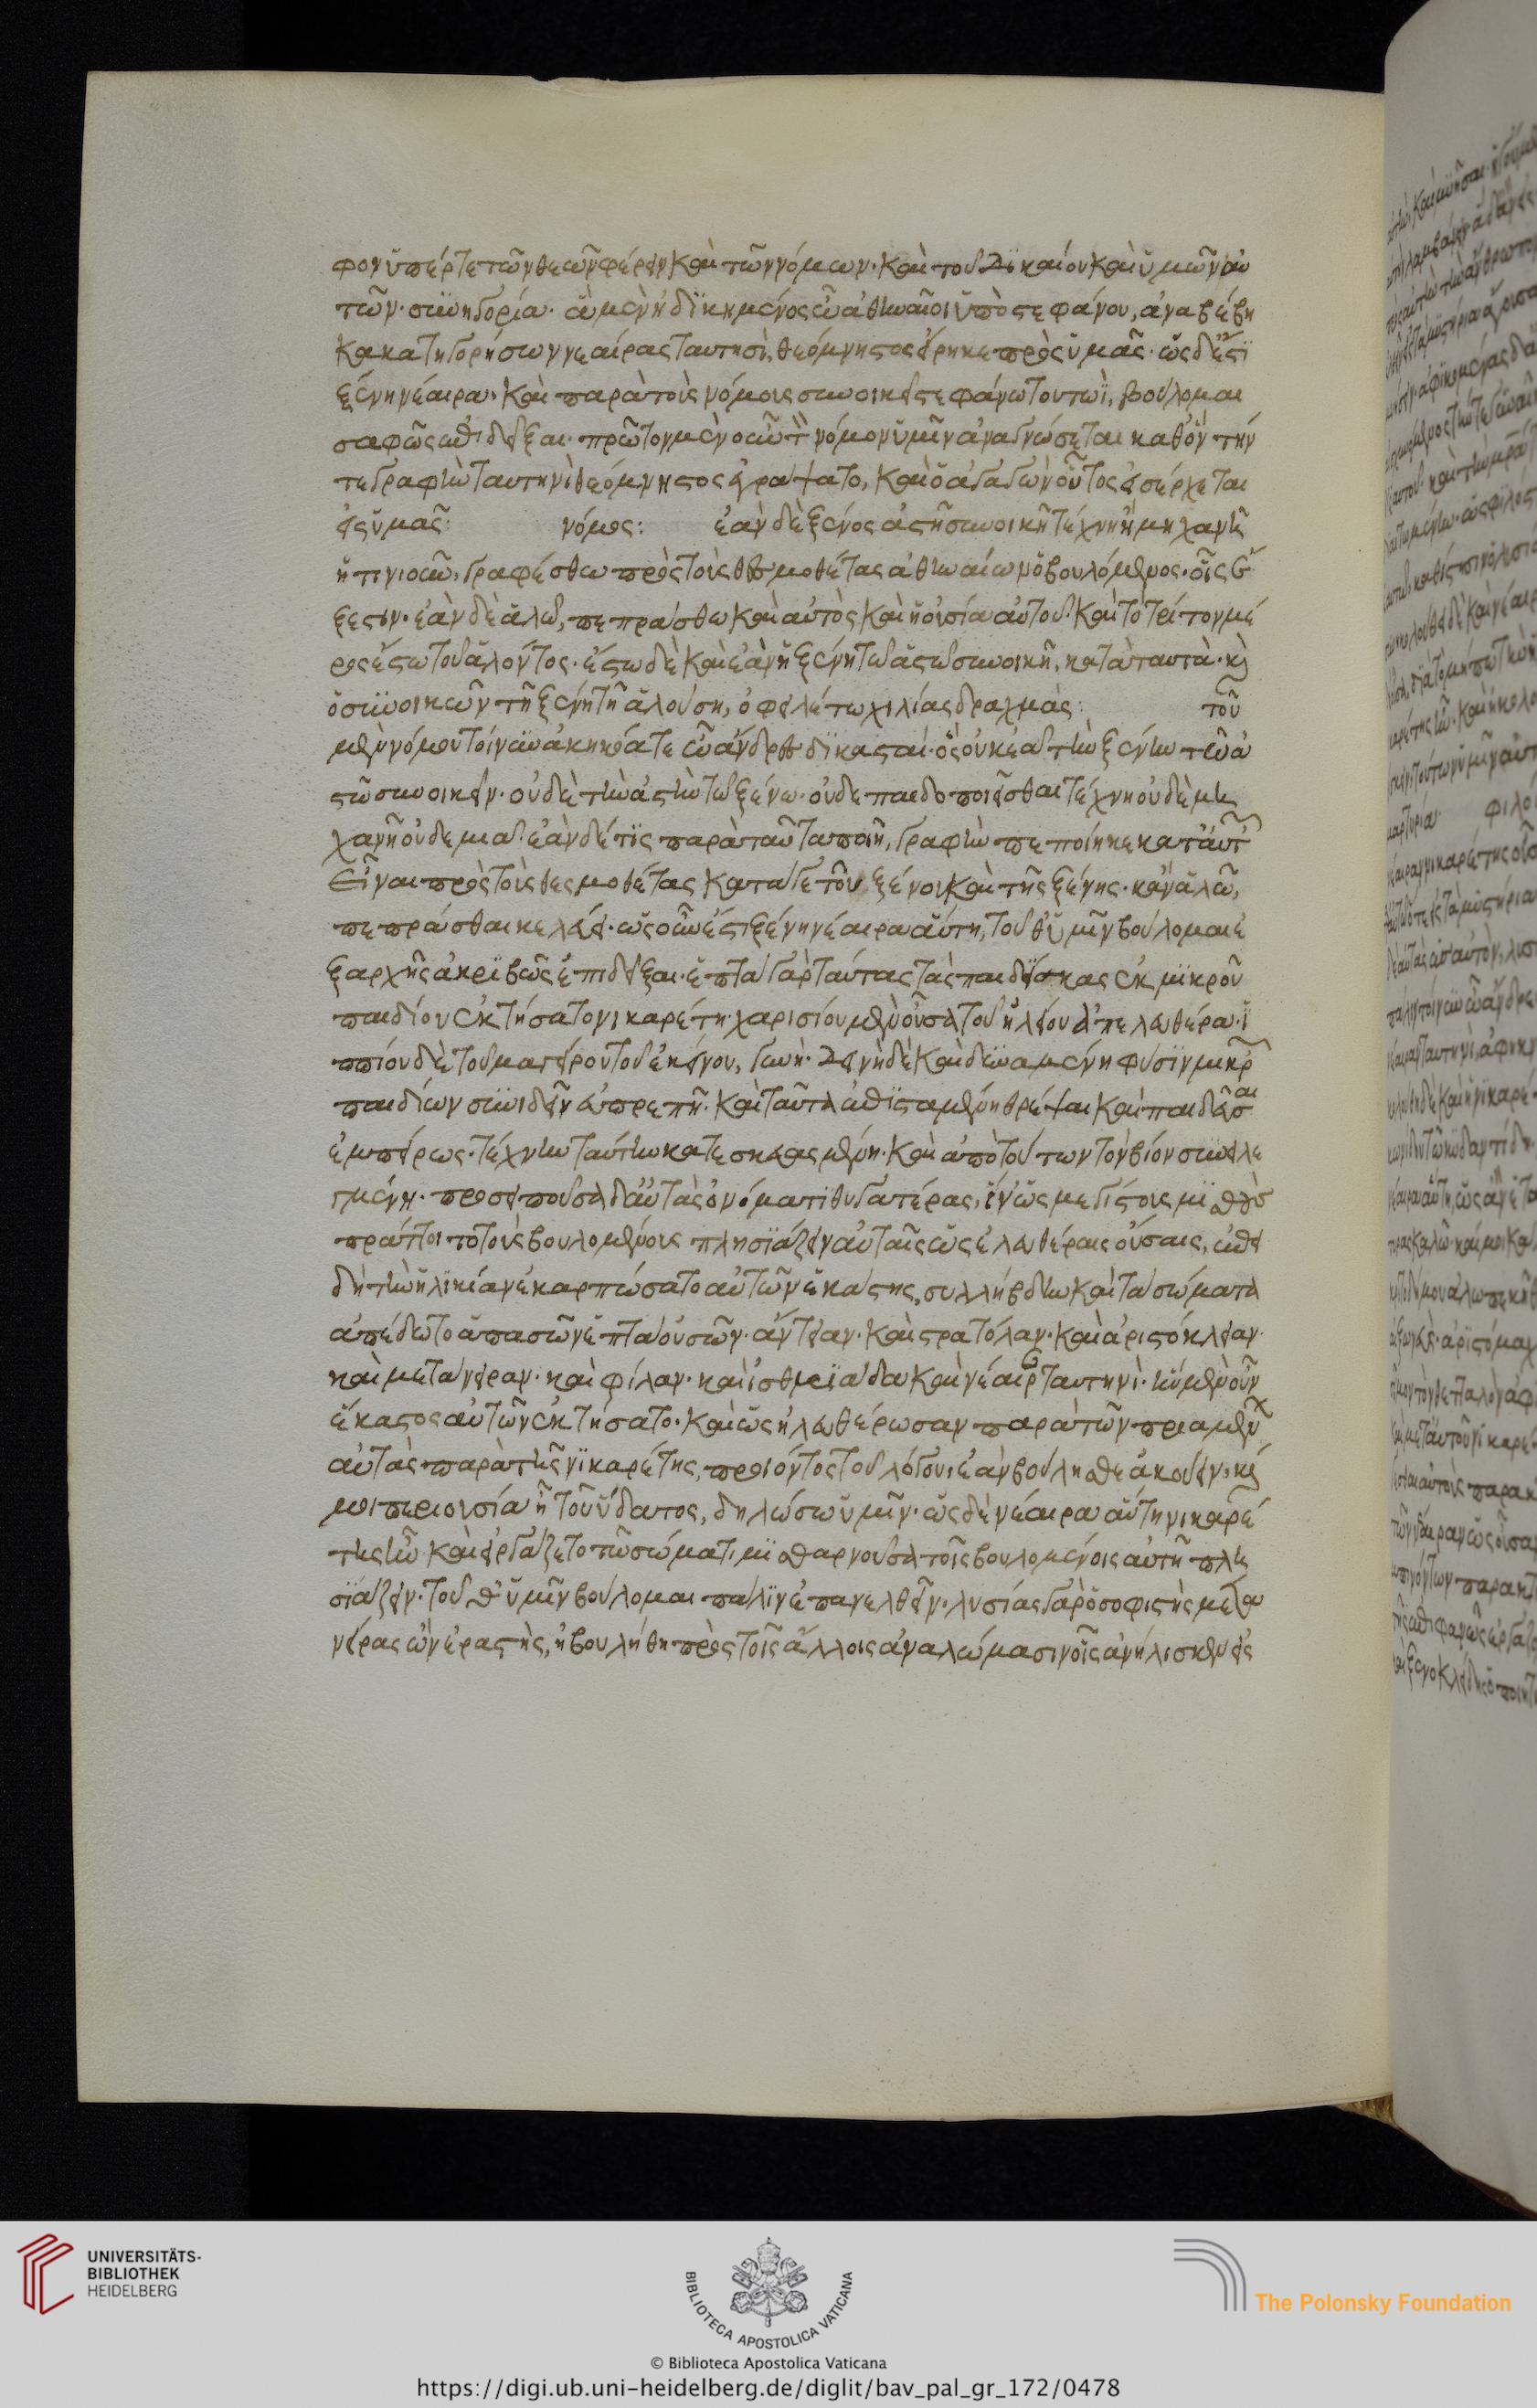 φον ὑπέρ τε τῶν θεῶν φέρειν καὶ τῶν νόμων· καὶ τοῦ δικαίου καὶ ὑμῶν αὐ
τῶν· συνηγορία· ἃ μὲν ἠδικημένος ὦ ἀθηναῖοι ὑπὸ στεφάνου, ἀναβέβη
κα κατηγορήσων νεαίρας ταυτησὶ, θεόμνηστος εἴρηκε πρὸς ὑμᾶς· ὡς δ' ἐστὶ
ξένη νέαιρα· καὶ παρὰ τοὺς νόμους συνοικεῖ στεφάνω τουτωῒ, βούλομαι
σαφῶς ἐπιδεῖξαι· πρῶτον μὲν οὖν τὸν νόμον ὑμῖν ἀναγνώσεται καθ' ὃν τήν
τε γραφὴν ταυτηνὶ θεόμνηστος ἐγράψατο, καὶ ὁ ἀγὼν οὗτος εἰσέρχεται
εἰς ὑμᾶς: νόμος: ἐὰν δὲ ξένος ἀστῆ συνοικῆ τέχνη ἢ μηχανῆ
ἥτινιοῦν, γραφέσθω πρὸς τοὺς θεσμοθέτας ἀθηναίων ὁ βουλόμενος· οἷς ἔ
ξεστιν· ἐὰν δὲ ἁλῶ, πεπράσθω καὶ αὐτὸς καὶ ἡ οὐσία αὐτοῦ· καὶ τὸ τρίτον μέ
ρος ἔστω τοῦ ἁλόντος· ἔστω δὲ καὶ ἐὰν ἡ ξένη τῶ ἀστῶ συνοικῆ, κατὰ ταυτὰ· καὶ
ὁ συνοικῶν τῆ ξένη τῆ ἁλούση, ὀφειλέτω χιλίας δραχμὰς: τοῦ
μὲν νόμου τοίνυν ἀκηκόατε ὦ ἄνδρες δικασταί· ὃς οὐκ ἐᾶ τὴν ξένην τῶ ἀ
στῶ συνοικεῖν· οὐδὲ τὴν ἀστὴν τῶ ξένω· οὐδὲ παιδοποιεῖσθαι τέχνη οὐδὲ μη
χανῆ οὐδεμιᾶ· ἐὰν δέ τις παρὰ ταῦτα ποιῆ, γραφὴν πεποίηκε κατ' αὐτῶν
εἶναι πρὸς τοὺς θεσμοθέτας κατά τε τοῦ ξένου καὶ τῆς ξένης· κἂν ἁλῶ,
πεπράσθαι κελεύει· ὡς οὖν ἐστὶ ξένη νέαιρα αὕτη, τοῦθ' ὑμῖν βούλομαι ἐ
ξαρχῆς ἀκριβῶς ἐπιδεῖξαι· ἑπτὰ γὰρ ταύτας τὰς παιδίσκας ἐκ μικροῦ
παιδίου ἐκτήσατο νικαρέτη· χαρισίου μὲν οὖσα τοῦ ἠλείου ἀπελευθέρα· ἱ
ππίου δὲ τοῦ μαγείρου τοῦ ἐκείνου, γυνή· δεινὴ δὲ καὶ δυναμένη φύσιν μικρῶν
παιδίων συνιδεῖν εὐπρεπῆ· καὶ ταῦτα ἐπισταμένη θρέψαι καὶ παιδεῦσαι
ἐμπείρως· τέχνην ταύτην κατεσκευασμένη· καὶ ἀπὸ τούτων τὸν βίον συνειλε
γμένη· προσειποῦσα δ' αὐτὰς ὀνόματι θυγατέρας, ἵν' ὡς μεγίστους μισθοὺς
πράττοιτο τοὺς βουλομένους πλησιάζειν αὐταῖς ὡς ἐλευθέραις οὔσαις, ἐπει
δὴ τὴν ἡλικίαν ἐκαρπώσατο αὐτῶν ἑκάστης, συλλήβδην καὶ τὰ σώματα
ἀπέδοτο ἁπασῶν ἑπτὰ οὐσῶν· ἄντειαν· καὶ στρατόλαν· καὶ ἀριστόκλειαν·
καὶ μετάνειραν· καὶ φίλαν· καὶ ἰσθμειάδα καὶ νέαιραν ταυτηνὶ· ἣν μὲν οὖν
ἕκαστος αὐτῶν ἐκτήσατο· καὶ ὡς ἠλευθέρωσαν παρὰ τῶν πριαμένων
αὐτὰς παρὰ τῆς νικαρέτης, προιόντος τοῦ λόγου· ἐὰν βούλησθε ἀκούειν· καί
μοι περιουσία ἦ τοῦ ὕδατος, δηλώσω ὑμῖν· ὡς δὲ νέαιρα αὕτη νικαρέ
της ἦν καὶ εἰργάζετο τῶ σώματι μισθαρνοῦσα τοῖς βουλομένοις αὐτῆ πλη
σιάζειν· τοῦθ' ὑμῖν βούλομαι πάλιν ἐπανελθεῖν· λυσίας γὰρ ὁ σοφιστὴς μετα
νείρας ὢν ἐραστὴς, ἠβουλήθη πρὸς τοῖς ἄλλοις ἀναλώμασιν οἷς ἀνήλισκεν εἰς
UNIVERSITÄTS-
BIBLIOTHEK
HEIDELBERG
BIBLIOTECA APOSTOLICA VATICANA
The Polonsky Foundation
© Biblioteca Apostolica Vaticana
https://digi.ub.uni-heidelberg.de/diglit/bav_pal_gr_172/0478